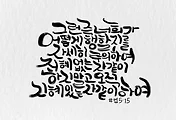 그런즉 너희가
어떻게 행할지를
자세히 주의하여
지혜 없는 자 같이
하지말고 오직
지혜 있는 자 같이 하여
엡5:15